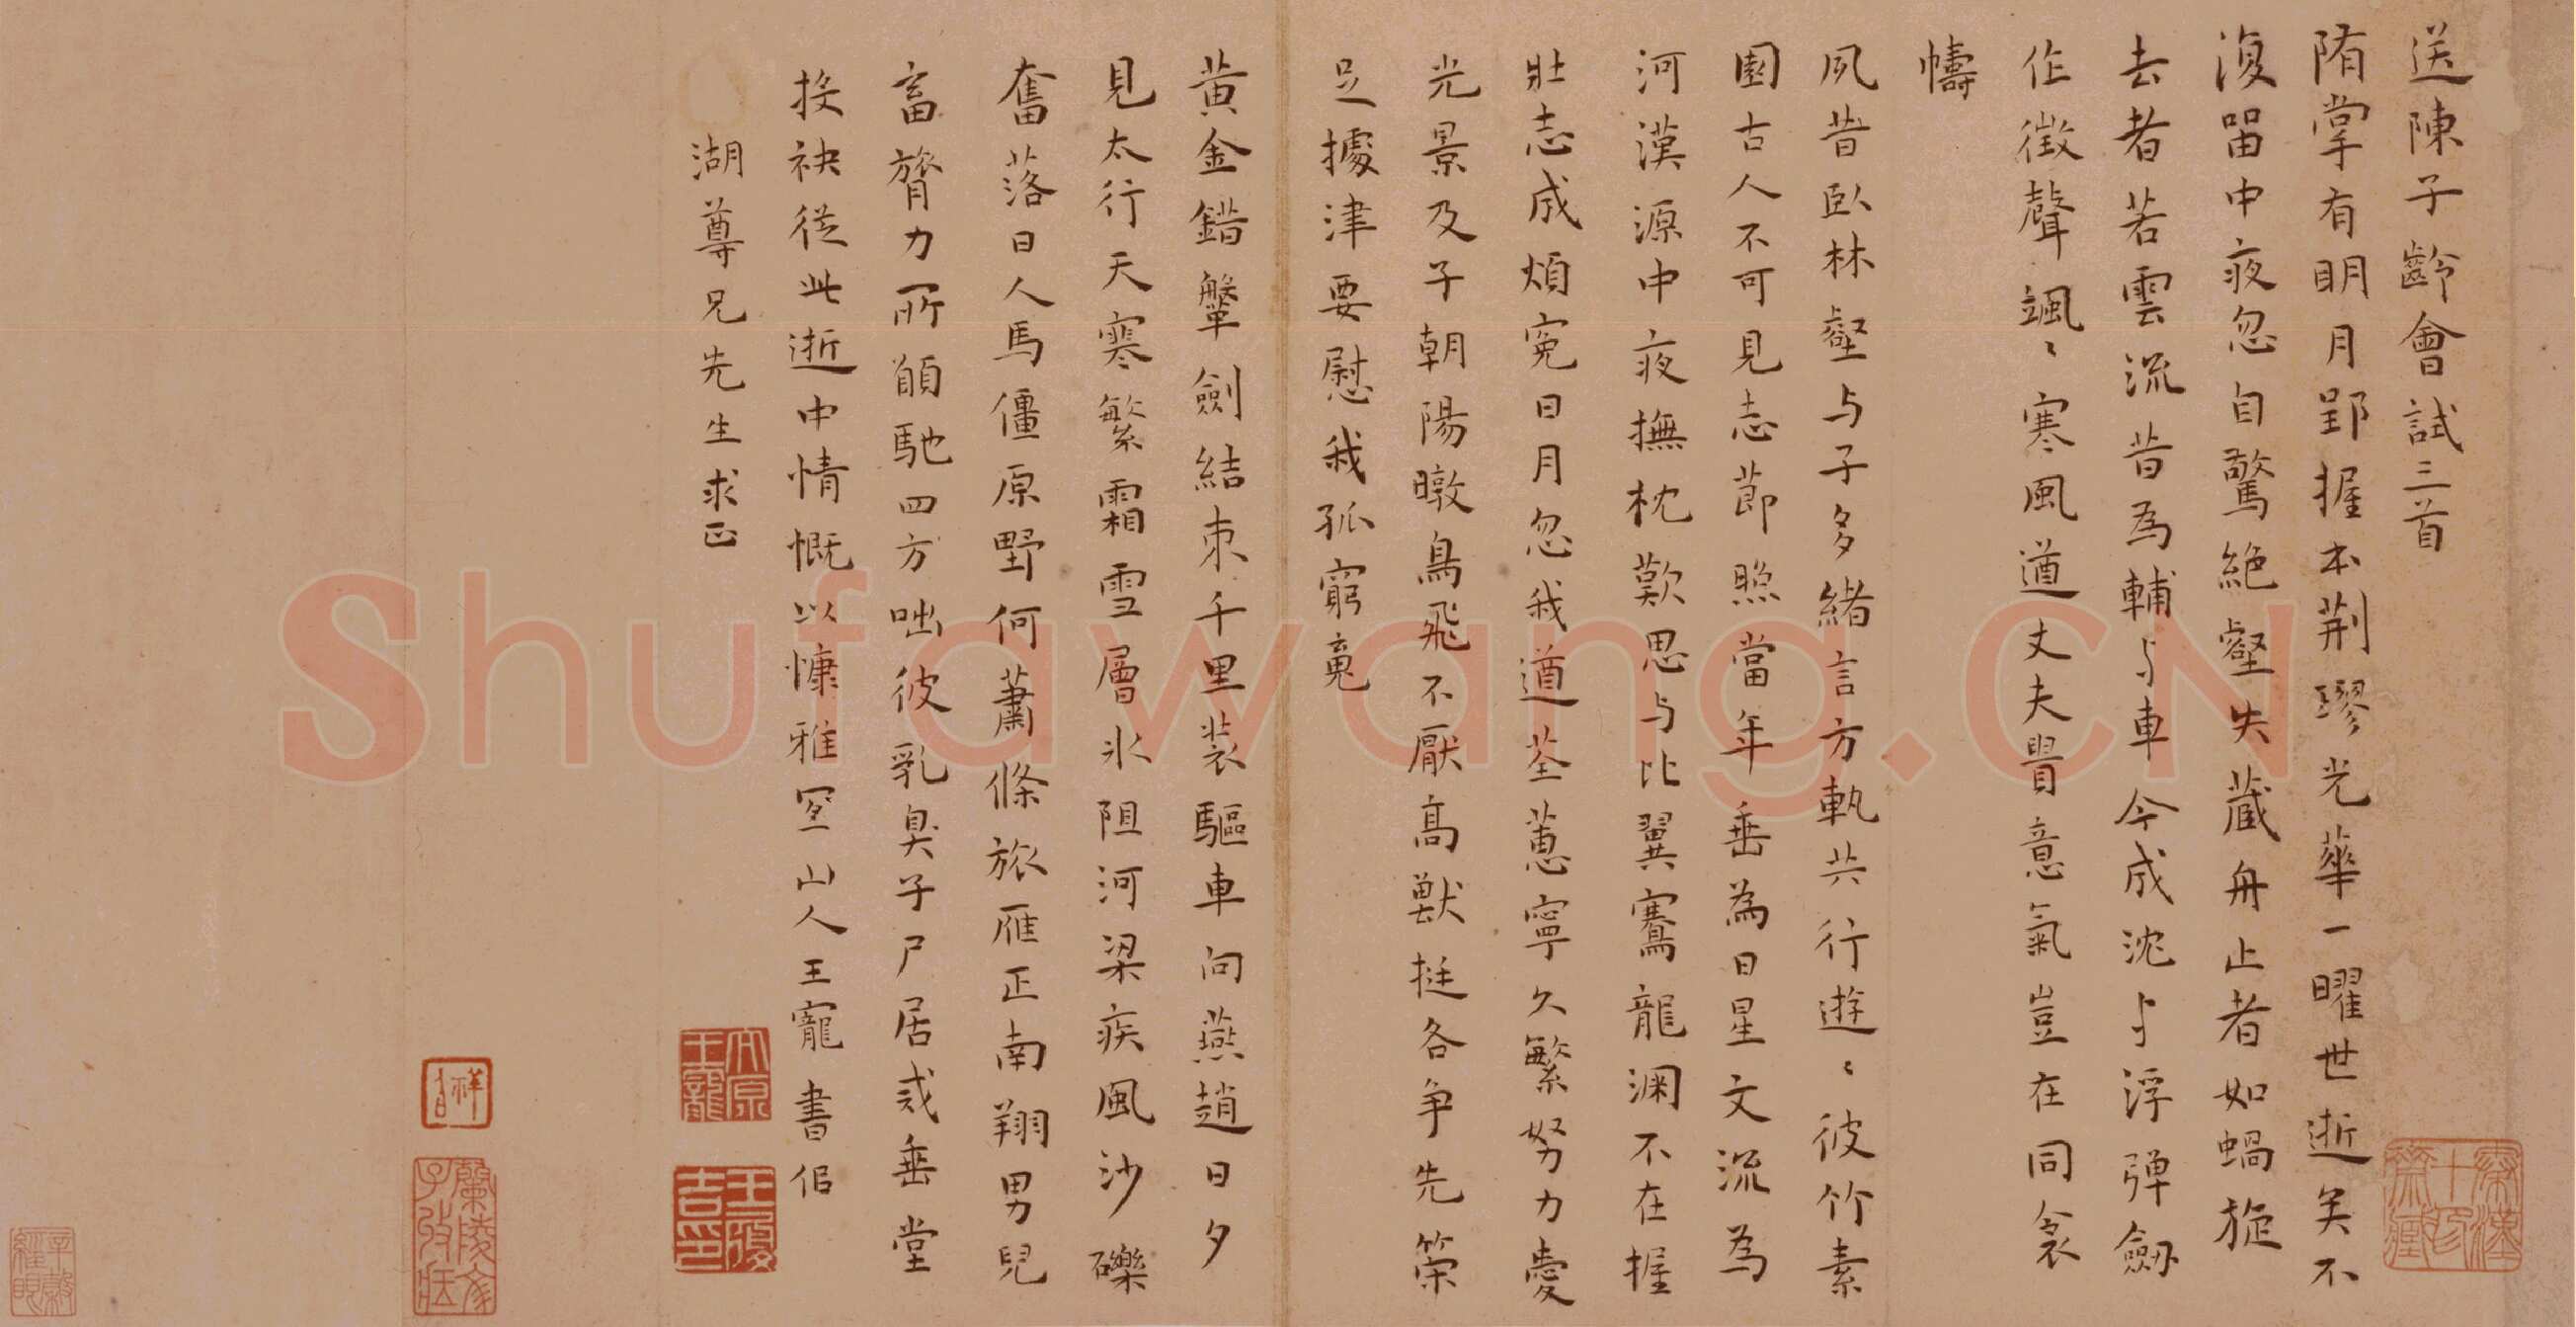 送陳子齡會試三首
隋掌有明月郢握本荆璆光華一曜世逝矣不
復畱中夜忽自驚絶壑失蔵舟止者如蝸旋
去者若雲流昔為輔与車今成沈与浮彈劔
作徵聲颯〻寒風遒丈夫貴意氣豈在同衾
幬
夙昔臥林壑与子多緒言方軌共行遊〻彼竹素
園古人不可見志節照當年垂為日星文流為
河漢源中夜撫枕歎思与比翼騫龍淵不在握
壯志成煩寃日月忽我遒荃蕙寧久繁努力愛
光景及子朝陽暾鳥飛不厭高獸挺各争先榮
足據津要慰我孤窮䰟
黄金錯鞶劍結束千里装驅車向燕趙日夕
見太行天寒繁霜雪層氷阻河梁疾風沙礫
奮落日人馬僵原野何蕭條旅雁正南翔男兒
畜膂力所願馳四方咄彼乳臭子尸居戒垂堂
投袂従此逝中情慨以慷雅宜山人王寵書似
湖尊兄先生求正
太原王寵
王履吉印
Shufawang.CN